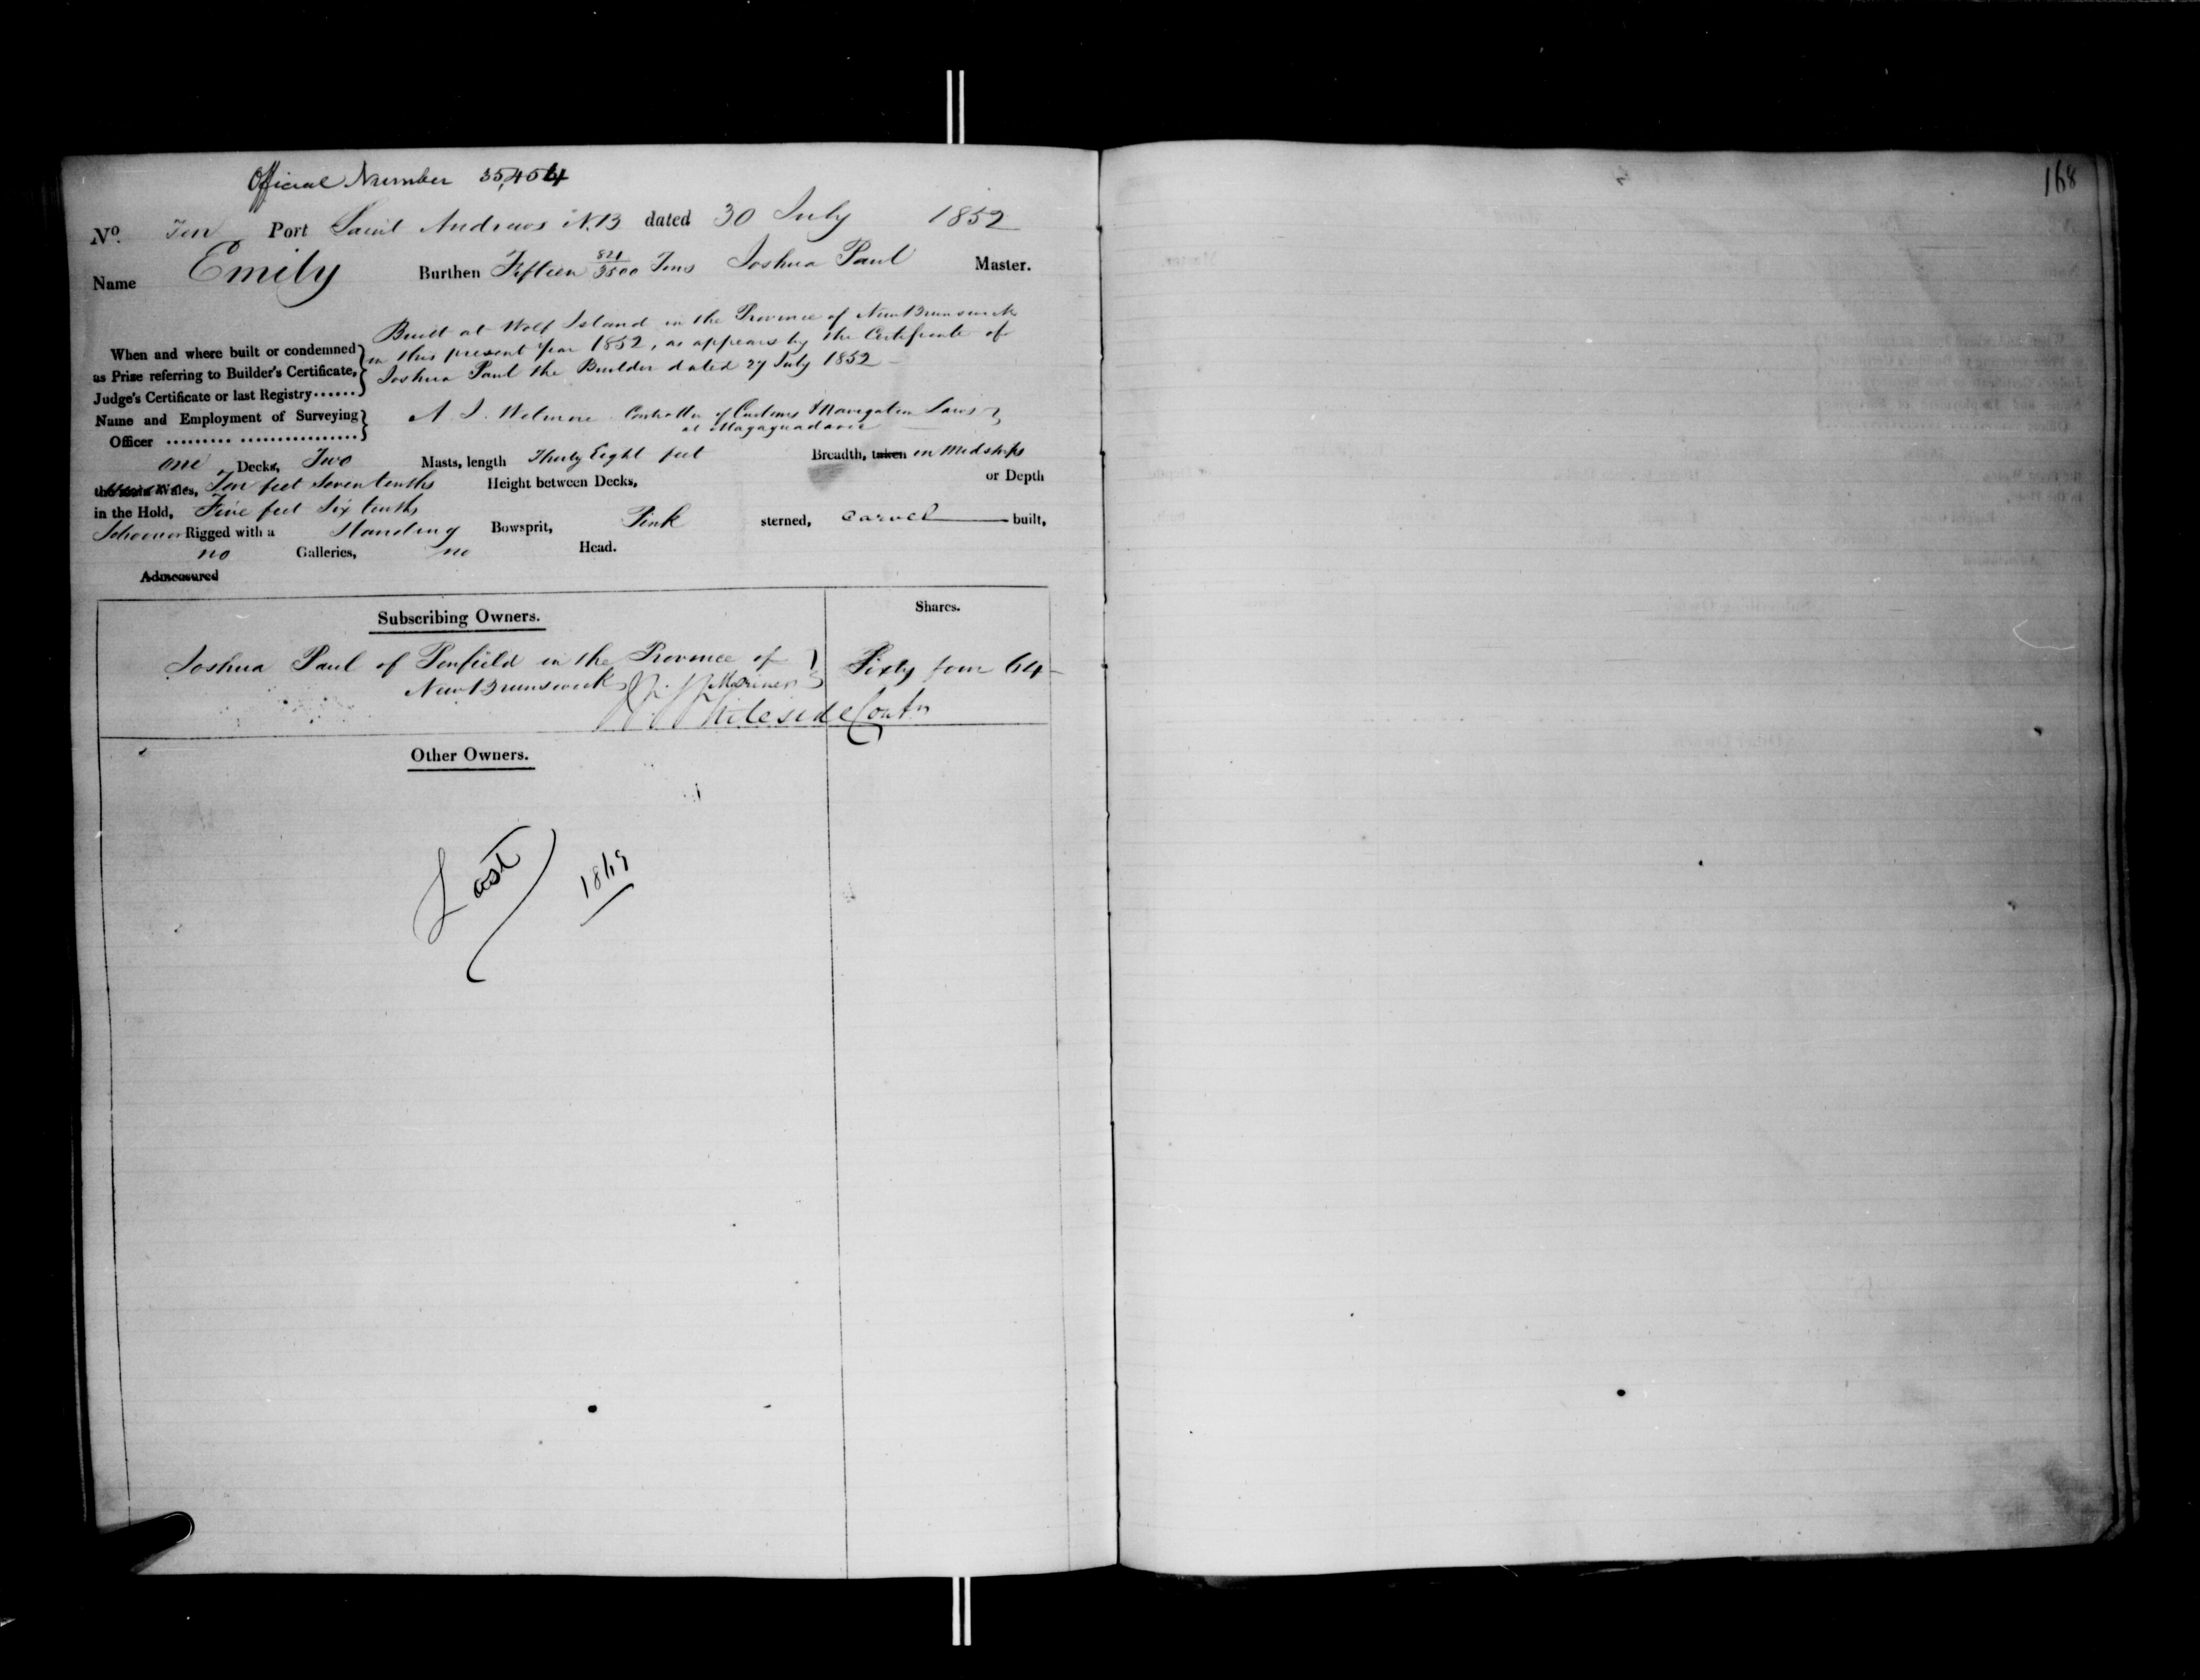 Official Number 35,454
168
No. Ten Port Saint Andrews N.B dated 30 July 1852
Name Emily Burthen Fifteen 821/3500 Tons Joshua Paul Master.
Built at Wolf Island in the Province of New Brunswick
When and where built or condemned in this present Year 1852, as appears by the Certificate of
as Prize referring to Builder's Certificate, Joshua Paul the Builder dated 27 July 1852
Judge's Certificate or last Registry......
Name and Employment of Surveying A. J. Wetmore Controller of Customs & Navigation Laws
Officer ......... ................ at Magaguadavic
one Decks, Two Masts, length Thirty Eight feet Breadth, taken in Midships
the main Wales, Ten feet Seven tenths Height between Decks, or Depth
in the Hold, Five feet Six tenths
Schooner Rigged with a Standing Bowsprit, Pink sterned, Carvel built,
no Galleries, no Head.
Admeasured
Subscribing Owners. Shares.
Joshua Paul of Penfield in the Province of Sixty four 64
New Brunswick Mariner
Whiteside Contr
Other Owners.
Lost 1869